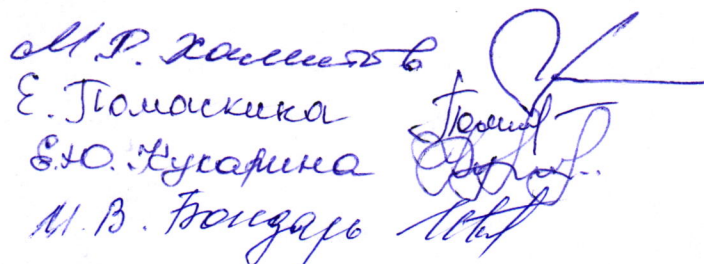 М.Р. Хамитов
Е. Помаскина
Е.Ю. Кукарина
И.В. Бондарь